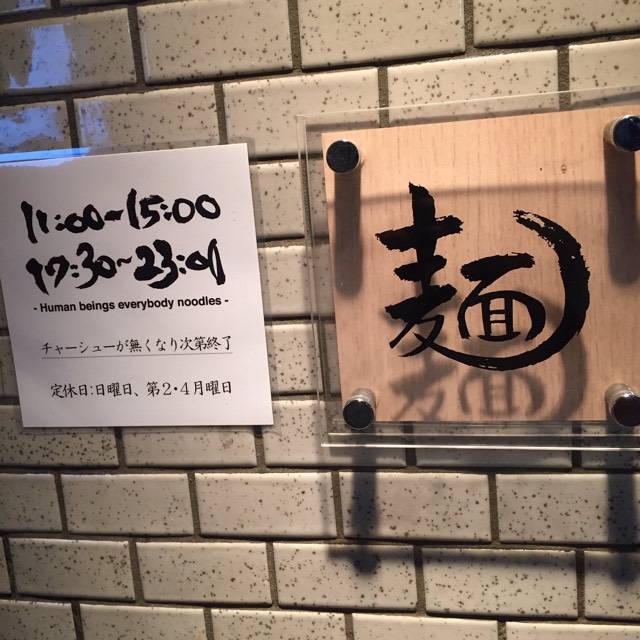 11:00~15:00
17:30~23:00
- Human beings everybody noodles -
チャーシューが無くなり次第終了
定休日:日曜日、第2・4月曜日
麺